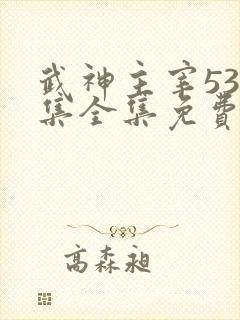 武神主宰53
集全集免費
高森昶